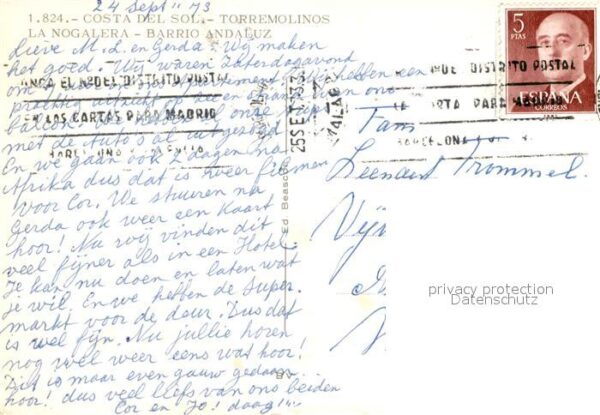 24 Sept" 73
1.824.- COSTA DEL SOL.- TORREMOLINOS
LA NOGALERA - BARRIO ANDALUZ
Lieve M. L. en Gerda. Wij maken
het goed. Wij waren zaterdagavond
om in ons apartment. Wij hebben een
prachtig uitzicht op zee en strand en ons
balcon. onze
met de Auto's al
En we gaan ook 2 dagen na
Afrika dus dat is weer filmen
voor Cor. We sturen na
Gerda ook weer een kaart
hoor! Nu wij vinden dit
veel fijner als in een Hotel.
Je kan nu doen en laten wat
je wil. En we hebben de Super.
markt voor de deur. Dus dat
is wel fijn. Nu jullie horen
nog wel weer eens wat hoor!
Dit is maar even gauw gedaan
hoor! dus veel liefs van ons beiden
Cor en Jo! daag!!"
EL Nº DEL DISTRITO POSTAL
EN LAS CARTAS PARA MADRID
BARCELONA
25 SET 73
MALAGA
DISTRITO POSTAL
PARA MADRID
BARCELONA
Ed Beascoa
5
PTAS
ESPAÑA
CORREOS
Fam
Leendert Trommel.
privacy protection
Datenschutz